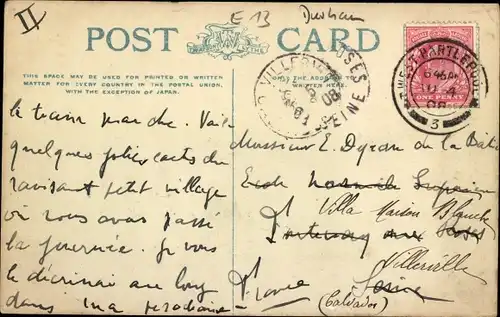 II
E 13 Durham
POST CARD
THIS SPACE MAY BE USED FOR PRINTED OR WRITTEN
MATTER FOR EVERY COUNTRY IN THE POSTAL UNION,
WITH THE EXCEPTION OF JAPAN.
THE ADDRESS TO BE
WRITTEN HERE.
WEST HARTLEPOOL
08
3
ONE PENNY
08
SEINE
le train marche. Voici
quelques jolies cartes du
ravissant petit village
où nous avons passé
la journée. Je vous
le décrirai au long
dans ma prochaine
Monsieur E. Dyson de la
Ecole Normale
Villa Maison Blanche
Villerville
Seine
France
(Calvados)